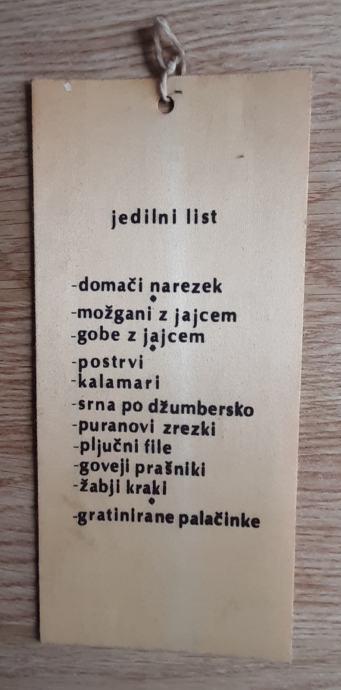 jedilni list
-domači narezek
-možgani z jajcem
-gobe z jajcem
-postrvi
-kalamari
-srna po džumbersko
-puranovi zrezki
-pljučni file
-goveji prašniki
-žabji kraki
-gratinirane palačinke